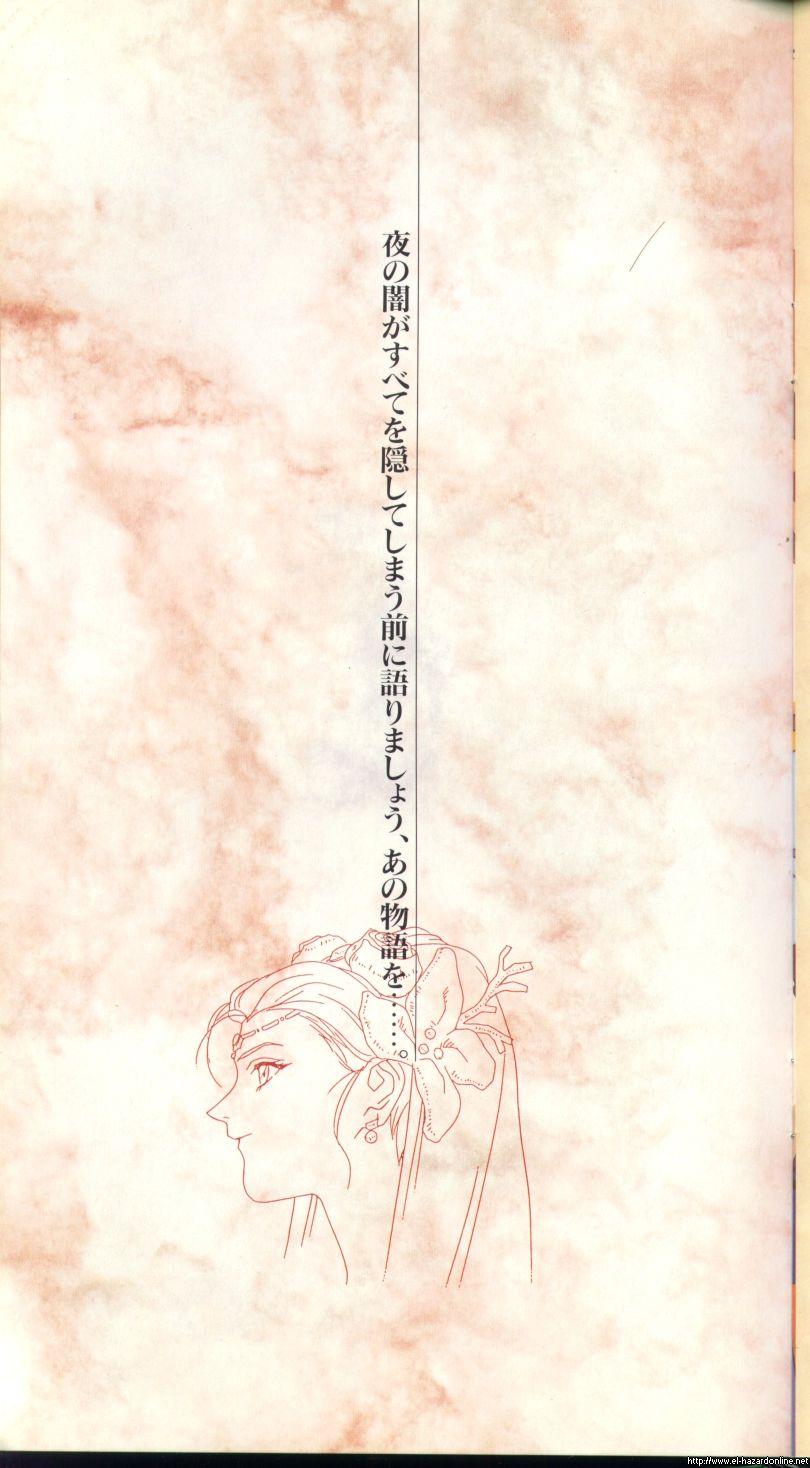 夜の闇がすべてを隠してしまう前に語りましょう、あの物語を……。
http://www.el-hazardonline.net